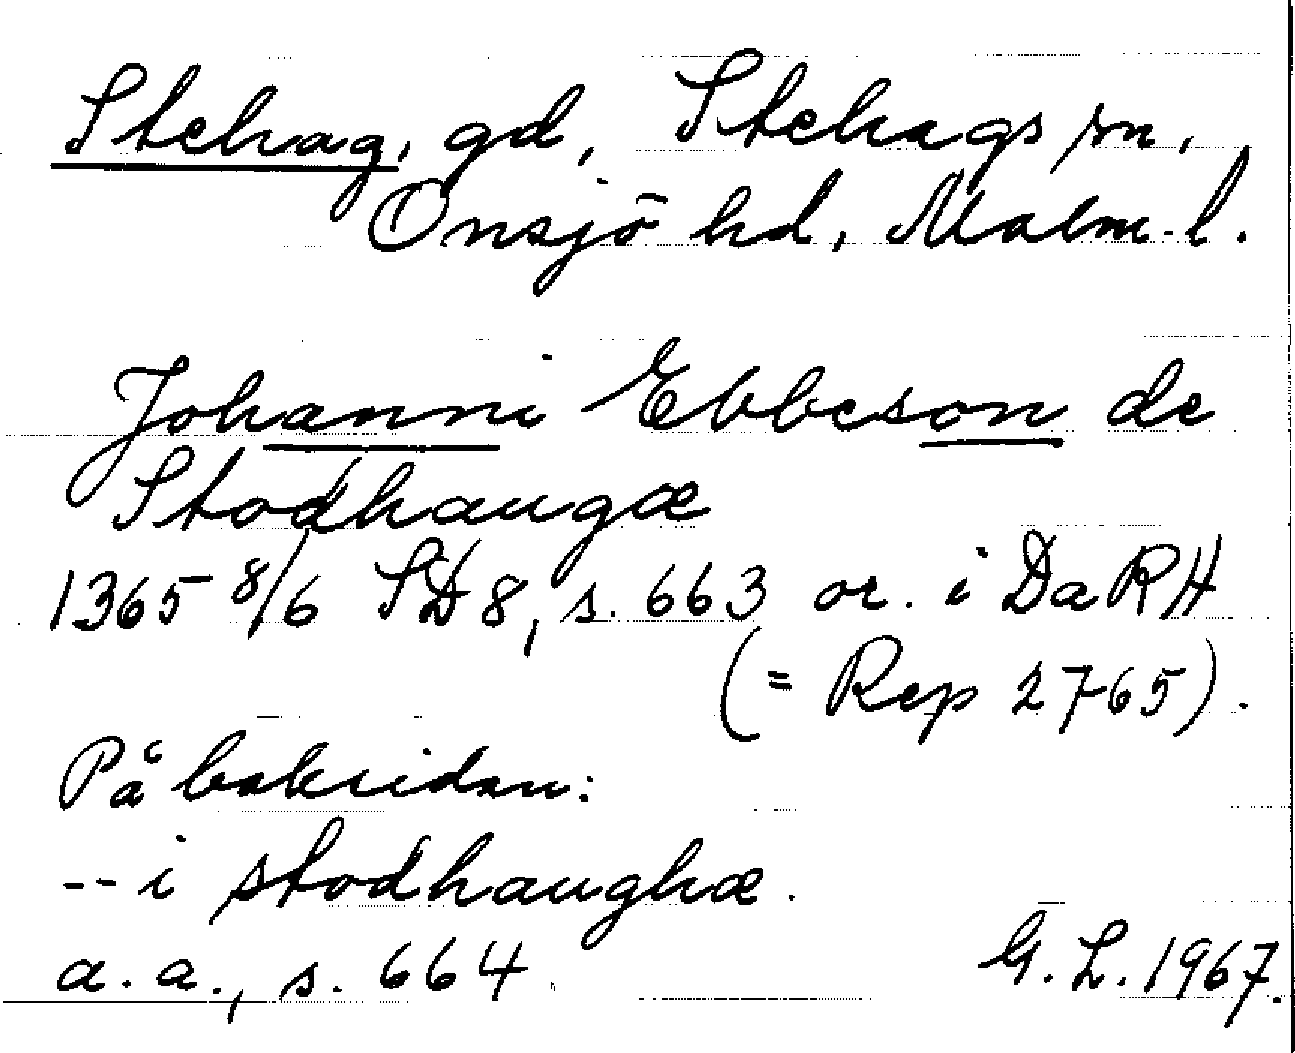 Stehag, gd, Stehags sn,
Onsjö hd, Malm. l.
Johanni Ebbeson de
Stodhaugæ
1365 8/6 SD 8, s. 663 or. i DaRH
(= Rep 2765).
På baksidan:
-- i stodhaughæ.
a. a., s. 664.
G. L. 1967.